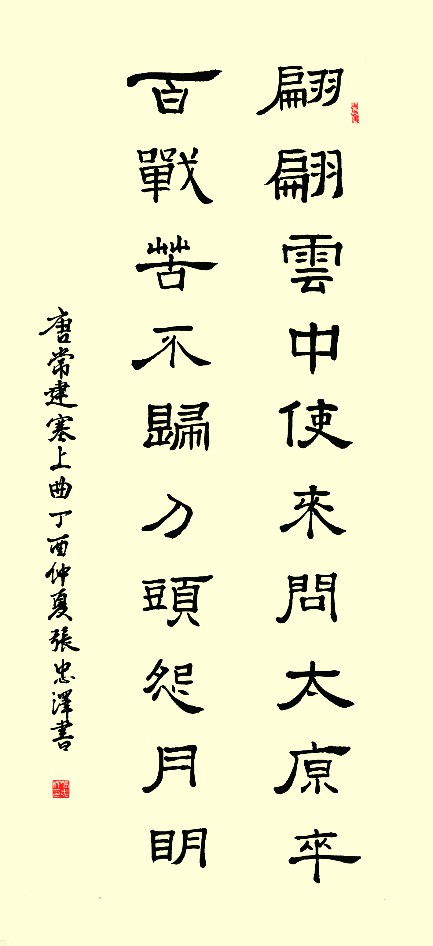 翩翩雲中使來問太原卒
百戰苦不歸刀頭怨月明
唐常建塞上曲丁酉仲夏張忠澤書